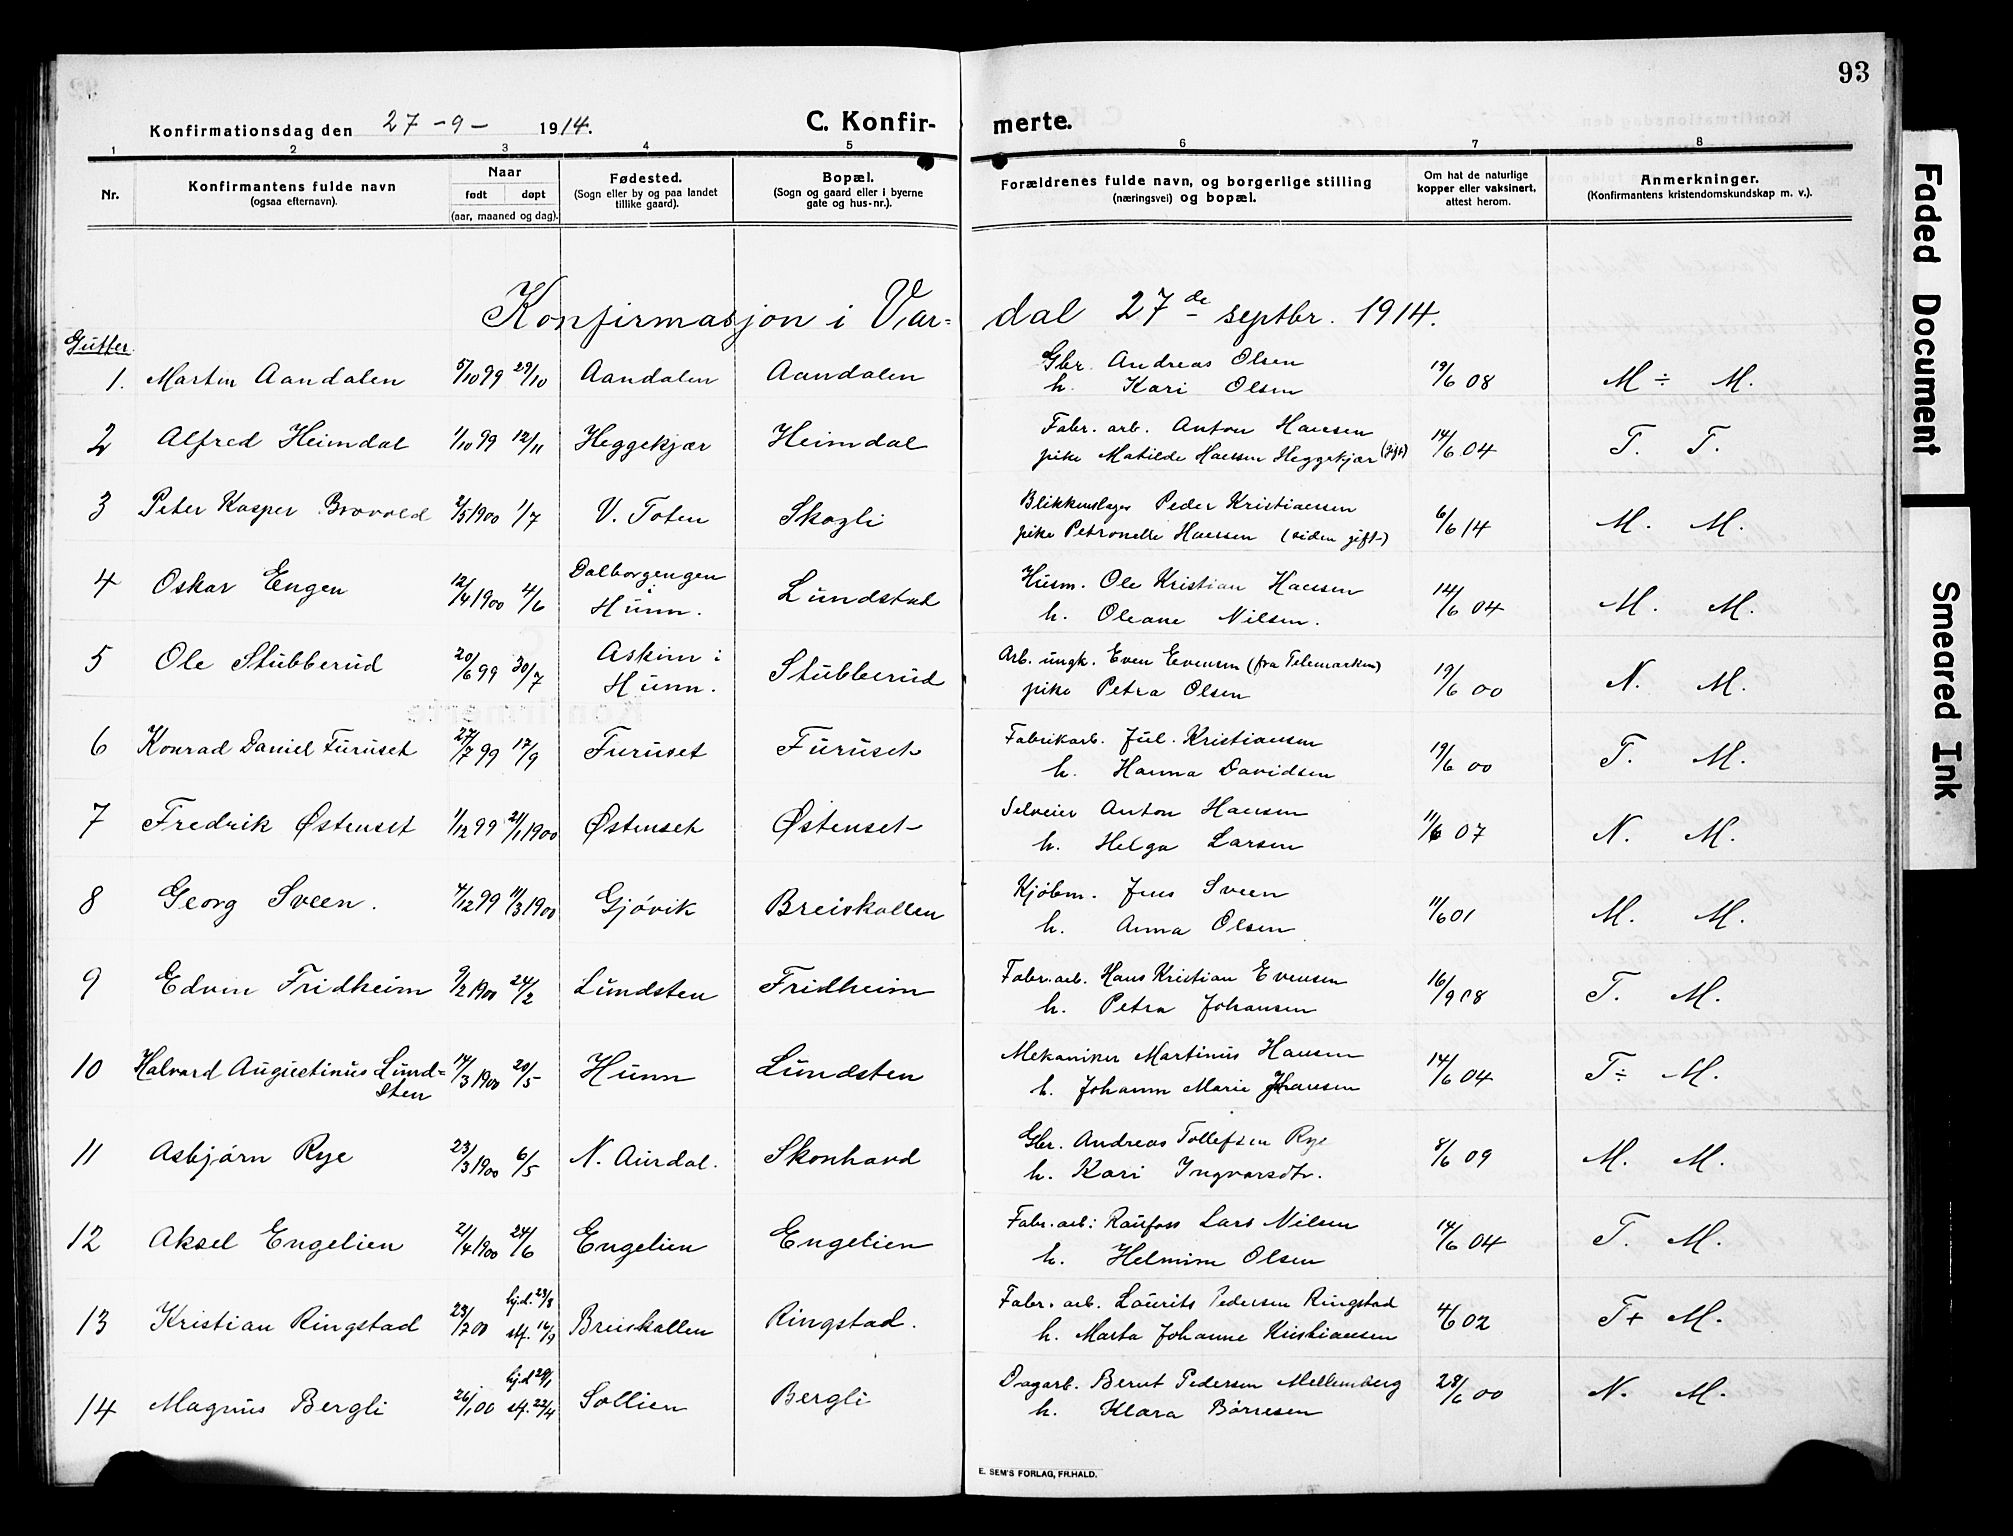 93
Konfirmationsdag den 27-9- 1914.
C. Konfir- merte.
1 2 3 4 5 6 7 8
Nr.
Konfirmantens fulde navn
(ogsaa efternavn).
Naar
født døpt
(aar, maaned og dag).
Fødested.
(Sogn eller by og paa landet
tillike gaard).
Bopæl.
(Sogn og gaard eller i byerne
gate og hus-nr.).
Forældrenes fulde navn, og borgerlige stilling
(næringsvei) og bopæl.
Om hat de naturlige
kopper eller vaksinert,
attest herom.
Anmerkninger.
(Konfirmantens kristendomskundskap m. v.).
Konfirmasjon i Var= dal 27de septbr. 1914.
Gutter.
1. Martin Aandalen 5/10 99 29/10 Aandalen Aandalen Gbr. Andreas Olsen 19/6 08 M ÷ M.
h. Kari Olsen
2 Alfred Heimdal 1/10 99 12/11 Heggekjær Heimdal Fabr. arb. Anton Hansen 14/6 04 T. T.
pike Matilde Hansen Heggekjær (gift)
3 Peter Kasper Brovold 2/5 1900 1/7 V. Toten Skogli Blikkenslager Peder Kristiansen 6/6 14 M. M.
pike Petronelle Hansen (siden gift)
4 Oskar Engen 12/4 1900 4/6 Dalborgengen i Lundstad Husm. Ole Kristian Hansen 14/6 04 M. M.
Hunn. h. Oleane Nilsen.
5 Ole Stubberud 20/6 99 30/7 Askim i Stubberud Arb. ungk. Even Evensen (fra Telemarken) 19/6 00 N. M.
Hunn. pike Petra Olsen
6 Konrad Daniel Furuset 27/7 99 17/9 Furuset Furuset Fabrikarb. Jul. Kristiansen 19/6 00 T. M.
h. Hanna Davidsen
7 Fredrik Østenset 1/12 99 21/1 1900 Østenset Østenset Selveier Anton Hansen 11/6 07 N. M.
h. Helga Larsen
8 Georg Sveen. 4/12 99 11/3 1900 Gjövik Breiskallen Kjöbm. Jens Sveen 11/6 01 M. M.
h. Anna Olsen
9 Edvin Fridheim 9/2 1900 24/2 Lundsten Fridheim Fabr. arb. Hans Kristian Evensen 16/9 08 T. M.
h. Petra Johansen
10 Halvard Augustinus Lund= 14/3 1900 20/5 Hunn Lundsten Mekaniker Martinus Hansen 14/6 04 T ÷ M.
sten h. Johanne Marie Johansen
11 Asbjörn Rye 23/3 1900 6/5 N. Aurdal. Skonhard Gbr. Andreas Tollefsen Rye 8/6 09 M. M.
h. Kari Ingvarsdtr.
12 Aksel Engelien 21/4 1900 24/6 Engelien Engelien Fabr. arb: Raufoss Lars Nilsen 14/6 04 T. M.
h. Helmine Olsen
13 Kristian Ringstad 23/7 00 hj.d. 23/8 stf. 16/9 Breiskallen Ringstad. Fabr. arb. Laurits Pedersen Ringstad 4/6 02 T+ M.
h. Marta Johanne Kristiansen
14 Magnus Bergli 26/1 00 hj.d 29/1 stf. 22/4 Sollien Bergli Dagarb. Bernt Pedersen Mellemberg 28/6 00 N. M.
h. Klara Børresen
E. SEM'S FORLAG, FR.HALD.
Faded Document
Smeared Ink